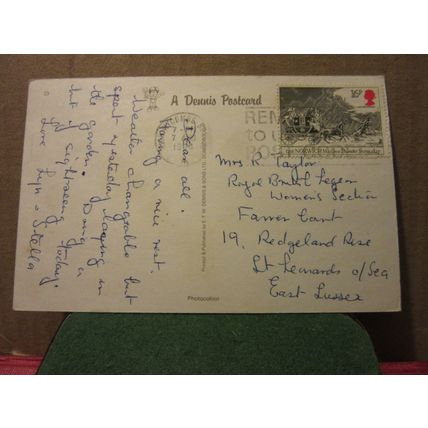 A Dennis Postcard
Dear all.
Having a nice rest.
Weather changeable but
spent yesterday lazing in
the garden. Doing a
bit of sightseeing today.
Love & Stella
Printed & Published by E. T. W. DENNIS & SONS LTD. SCARBOROUGH
Photocolour
16P
REM
to U
POS
The NORWICH Mail in a Thunderstorm
Mrs R. Taylor
Royal British Legion
Women's Section
Farrer Court
19, Redgeland Rise
St Leonards o/Sea
East Sussex